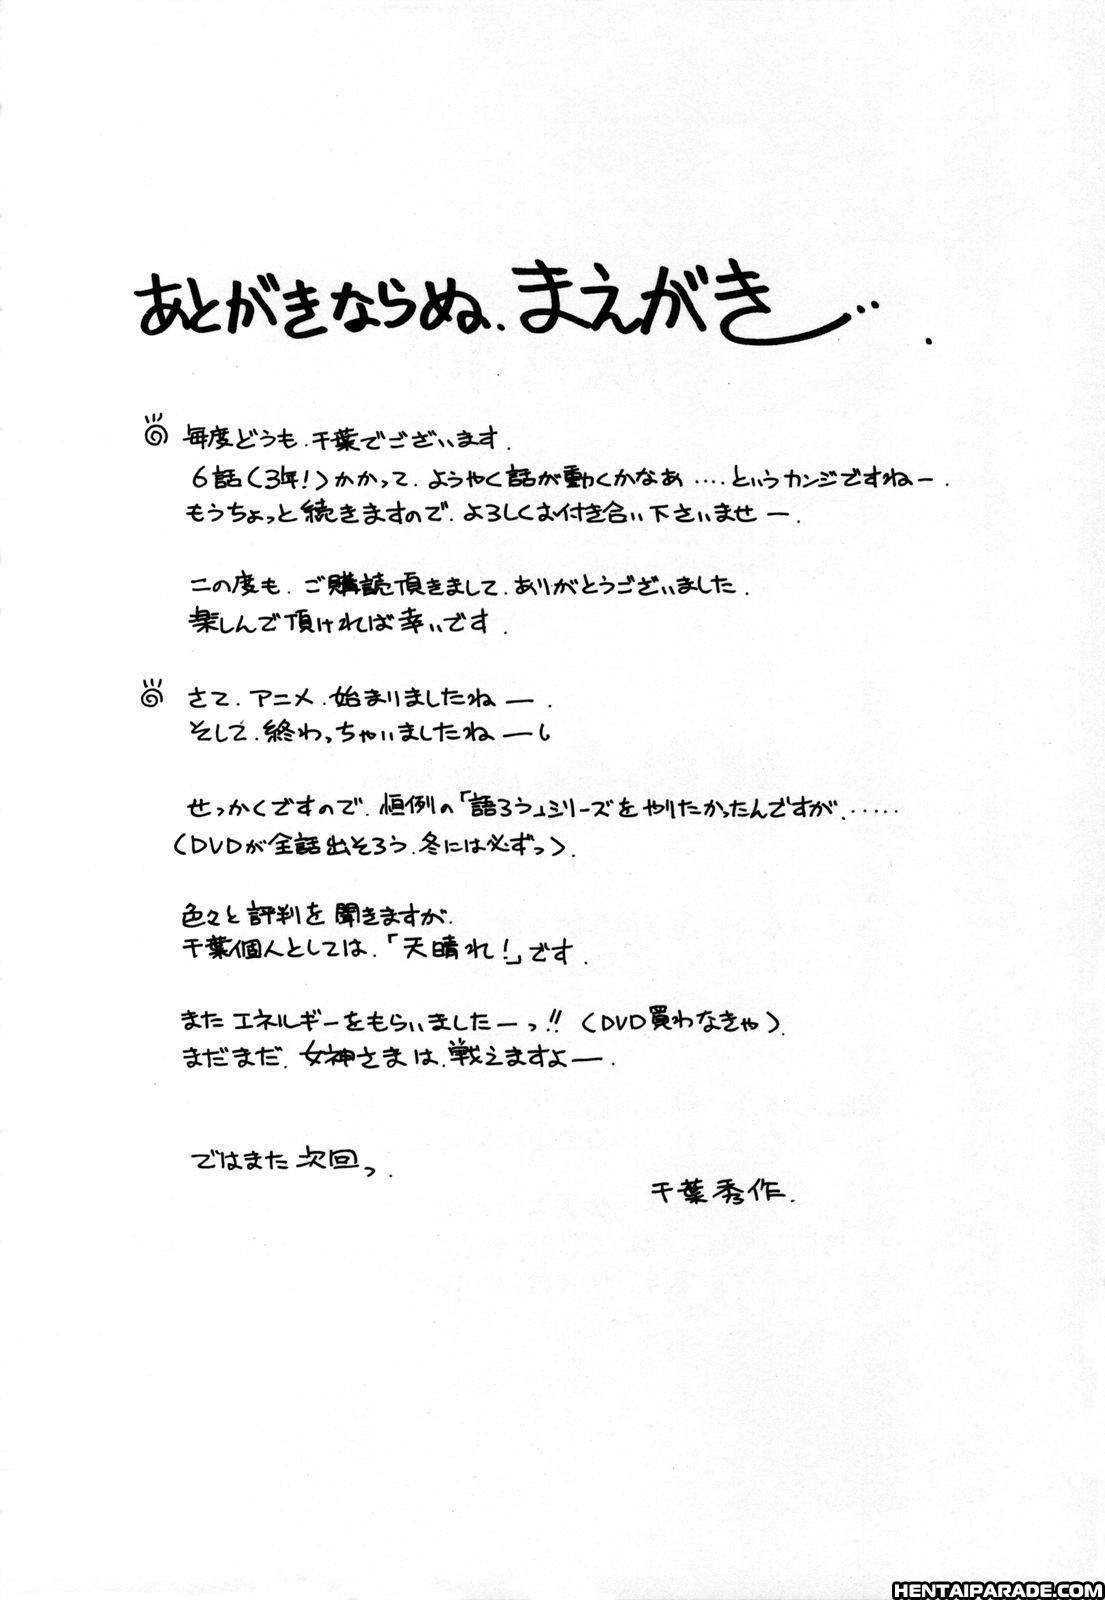 あとがきならぬ、まえがき…．
毎度どうも、千葉でございます．
6話（3年！）かかって、ようやく話が動くかなあ‥‥というカンジですねー．
もうちょっと続きますので、よろしくお付き合い下さいませー．
この度も、ご購読頂きまして、ありがとうございました．
楽しんで頂ければ幸いです．
さて、アニメ、始まりましたねー．
そして、終わっちゃいましたねー
せっかくですので、恒例の「語ろう」シリーズをやりたかったんですが、‥‥‥
（DVDが全話出そろう、冬には必ずっ）．
色々と評判を聞きますが、
千葉個人としては、「天晴れ！」です．
またエネルギーをもらいましたーっ!!（DVD買わなきゃ）．
まだまだ、女神さまは、戦えますよー．
ではまた次回っ．
千葉秀作．
HENTAIPARADE.COM